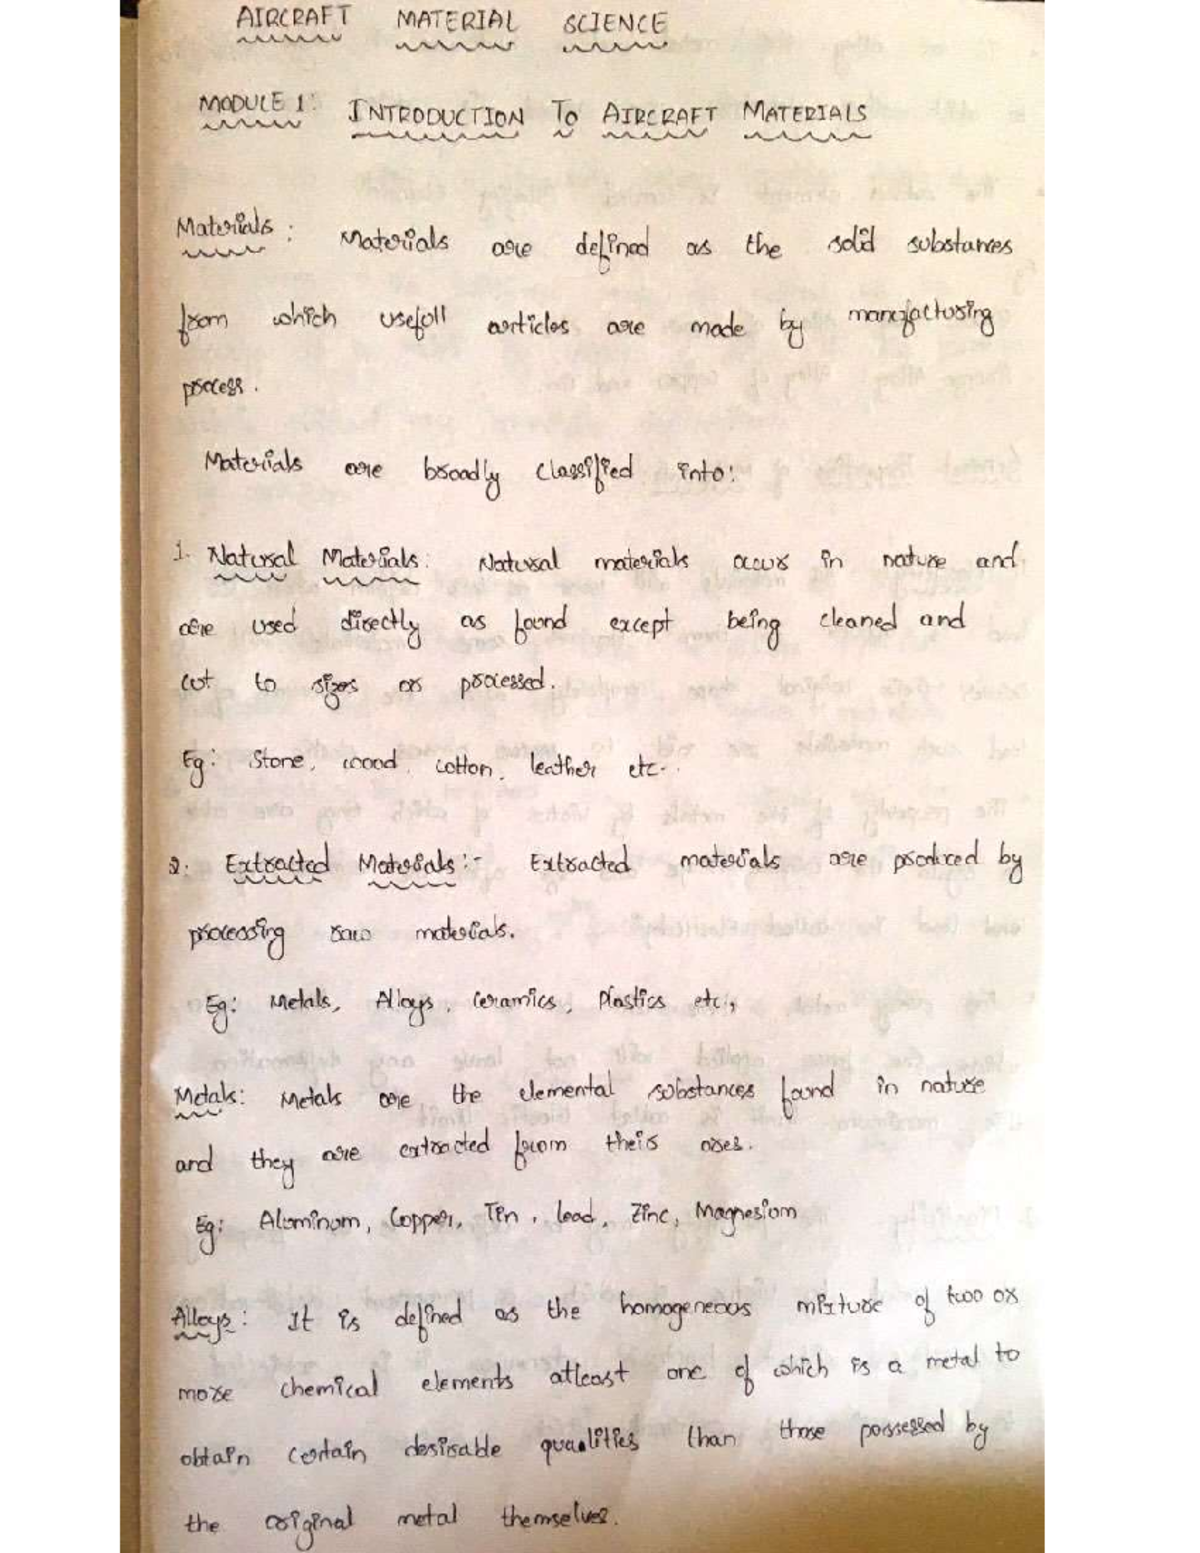 AIRCRAFT MATERIAL SCIENCE
MODULE 1: INTRODUCTION TO AIRCRAFT MATERIALS
Materials: Materials are defined as the solid substances
from which usefull articles are made by manufacturing
process.
Materials are broadly classified into:
1. Natural Materials: Natural materials occur in nature and
are used directly as found except being cleaned and
cut to sizes or processed.
Eg: Stone, wood, cotton, leather etc..
2. Extracted Materials:- Extracted materials are produced by
processing raw materials.
Eg: Metals, Alloys, Ceramics, Plastics etc.,
Metals: Metals are the elemental substances found in nature
and they are extracted from their ores.
Eg: Aluminum, Copper, Tin, lead, Zinc, Magnesium
Alloys: It is defined as the homogeneous mixture of two or
more chemical elements atleast one of which is a metal to
obtain certain desirable quaalities than those possessed by
the original metal themselves.